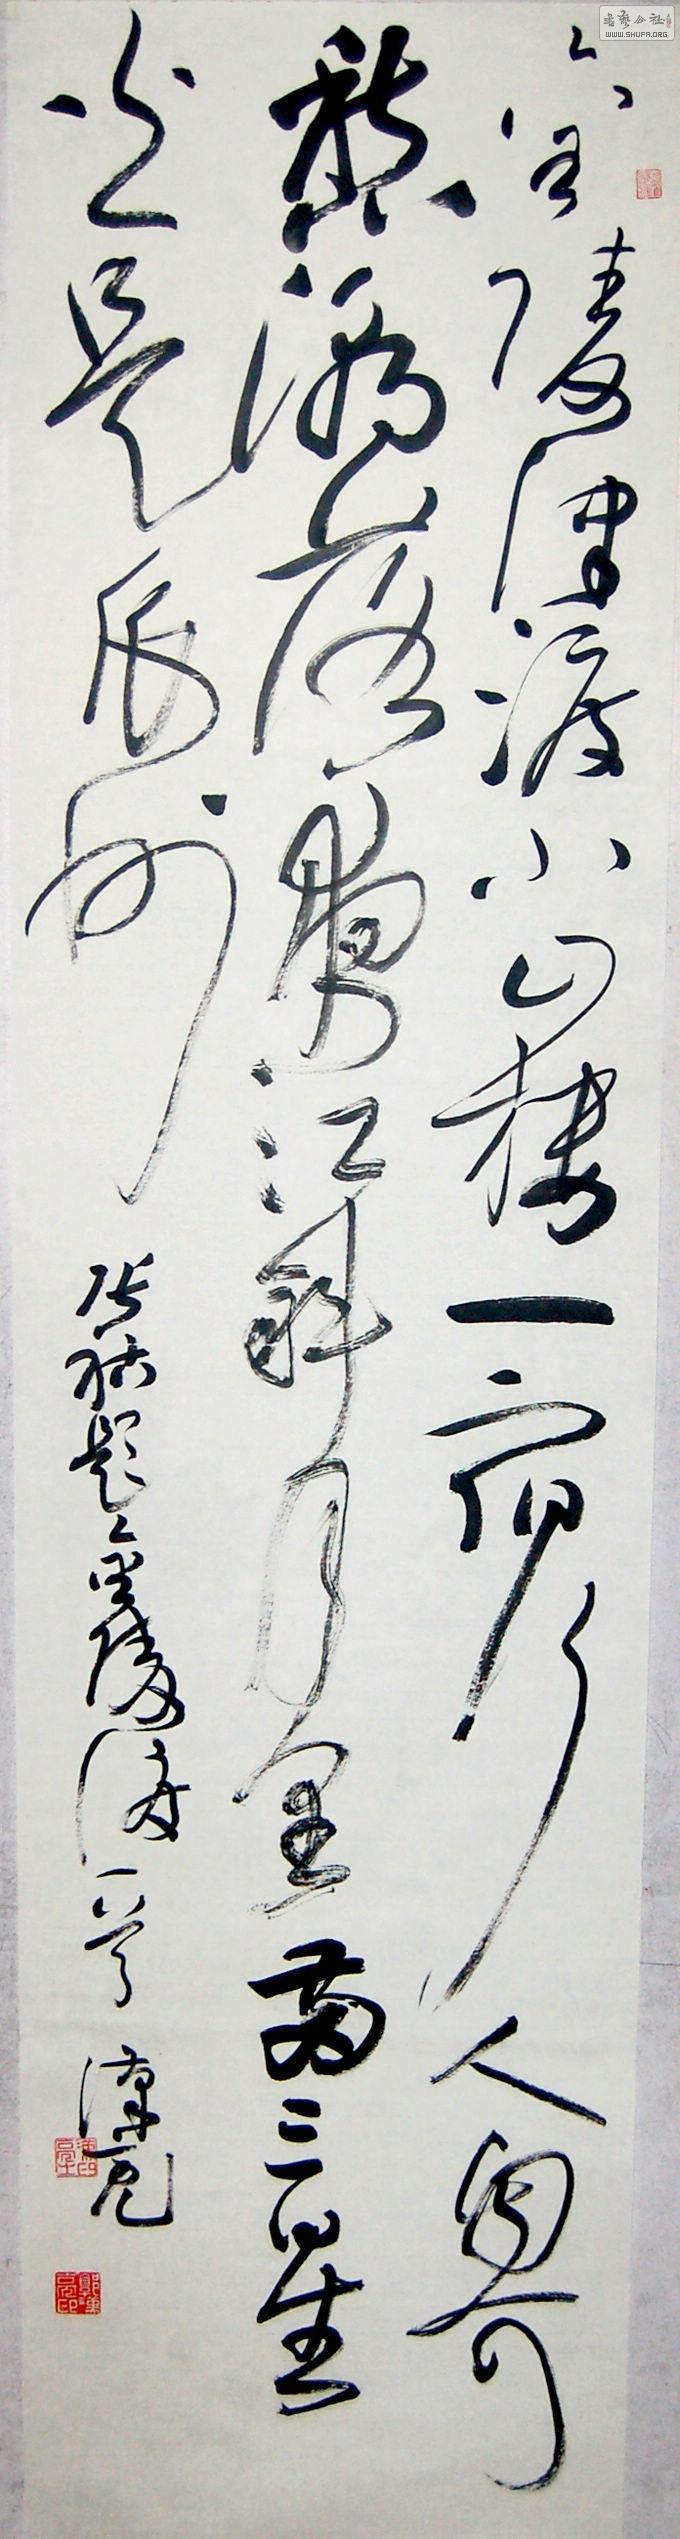 書藝公社
WWW.SHUFA.ORG
金陵津渡小山樓一宿行人自可
愁潮落夜江斜月里兩三星
火是瓜州
張祜題金陵渡一首 漢亮